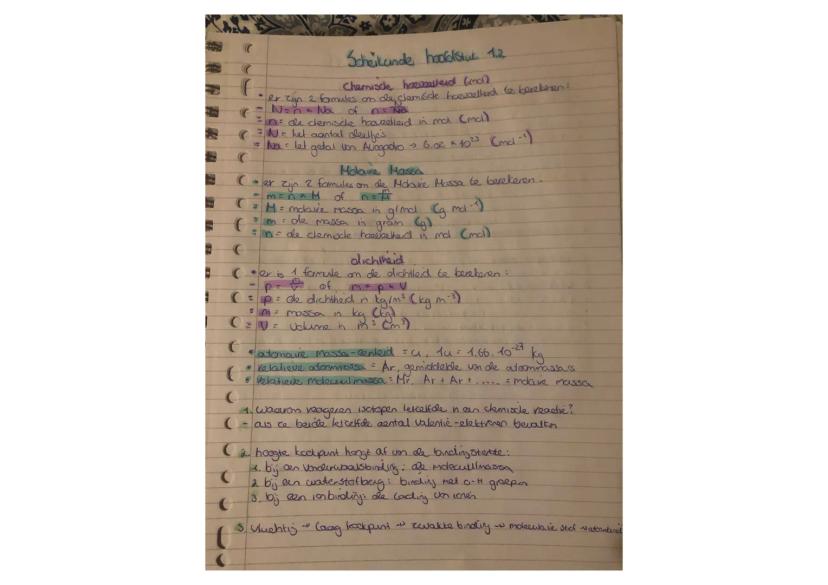 Scheikunde hoofdstuk 1.2
Chemische hoeveelheid (mol)
• er zijn 2 formules om de chemische hoeveelheid te berekenen:
- N = n × Na of n = N/Na
= n = de chemische hoeveelheid in mol (mol)
= N = het aantal deeltjes
= Na = het getal van Avogadro → 6.02 × 10²³ (mol⁻¹)
Molaire Massa
• er zijn 2 formules om de Molaire Massa te berekenen.
- m = n × M of n =
= M = molaire massa in g/mol (g mol⁻¹)
= m = de massa in gram (g)
= n = de chemische hoeveelheid in mol (mol)
dichtheid
• er is 1 formule om de dichtheid te berekenen:
- p = m/V of m = p × V
= p = de dichtheid in kg/m³ (kg m⁻³)
= m = massa in kg (kg)
= V = volume in m³ (m³)
• atomaire massa-eenheid = u, 1u = 1,66 . 10⁻²⁷ kg
• relatieve atoommassa = Ar, gemiddelde van de atoommassa's
• relatieve molecuulmassa = Mr, Ar + Ar + ..... = molaire massa
1. waarom reageren isotopen hetzelfde in een chemische reactie?
- als ze beide hetzelfde aantal valentie-elektronen bevatten
2. hoogte kookpunt hangt af van de bindingsterkte:
1. bij een vanderwaalsbinding: de molecuulmassa
2. bij een waterstofberg: binding met O-H groepen
3. bij een ionbinding: de lading van ionen
3. vluchtig → laag kookpunt → zwakke binding → moleculaire stof →